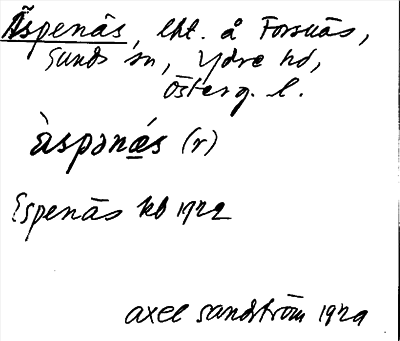 Äspenäs, lht. å Forsnäs,
Sunds sn, Ydre hd,
Österg. l.
àspənæ̀s (r)
Espenäs kb 1922
Axel Sandström 1929